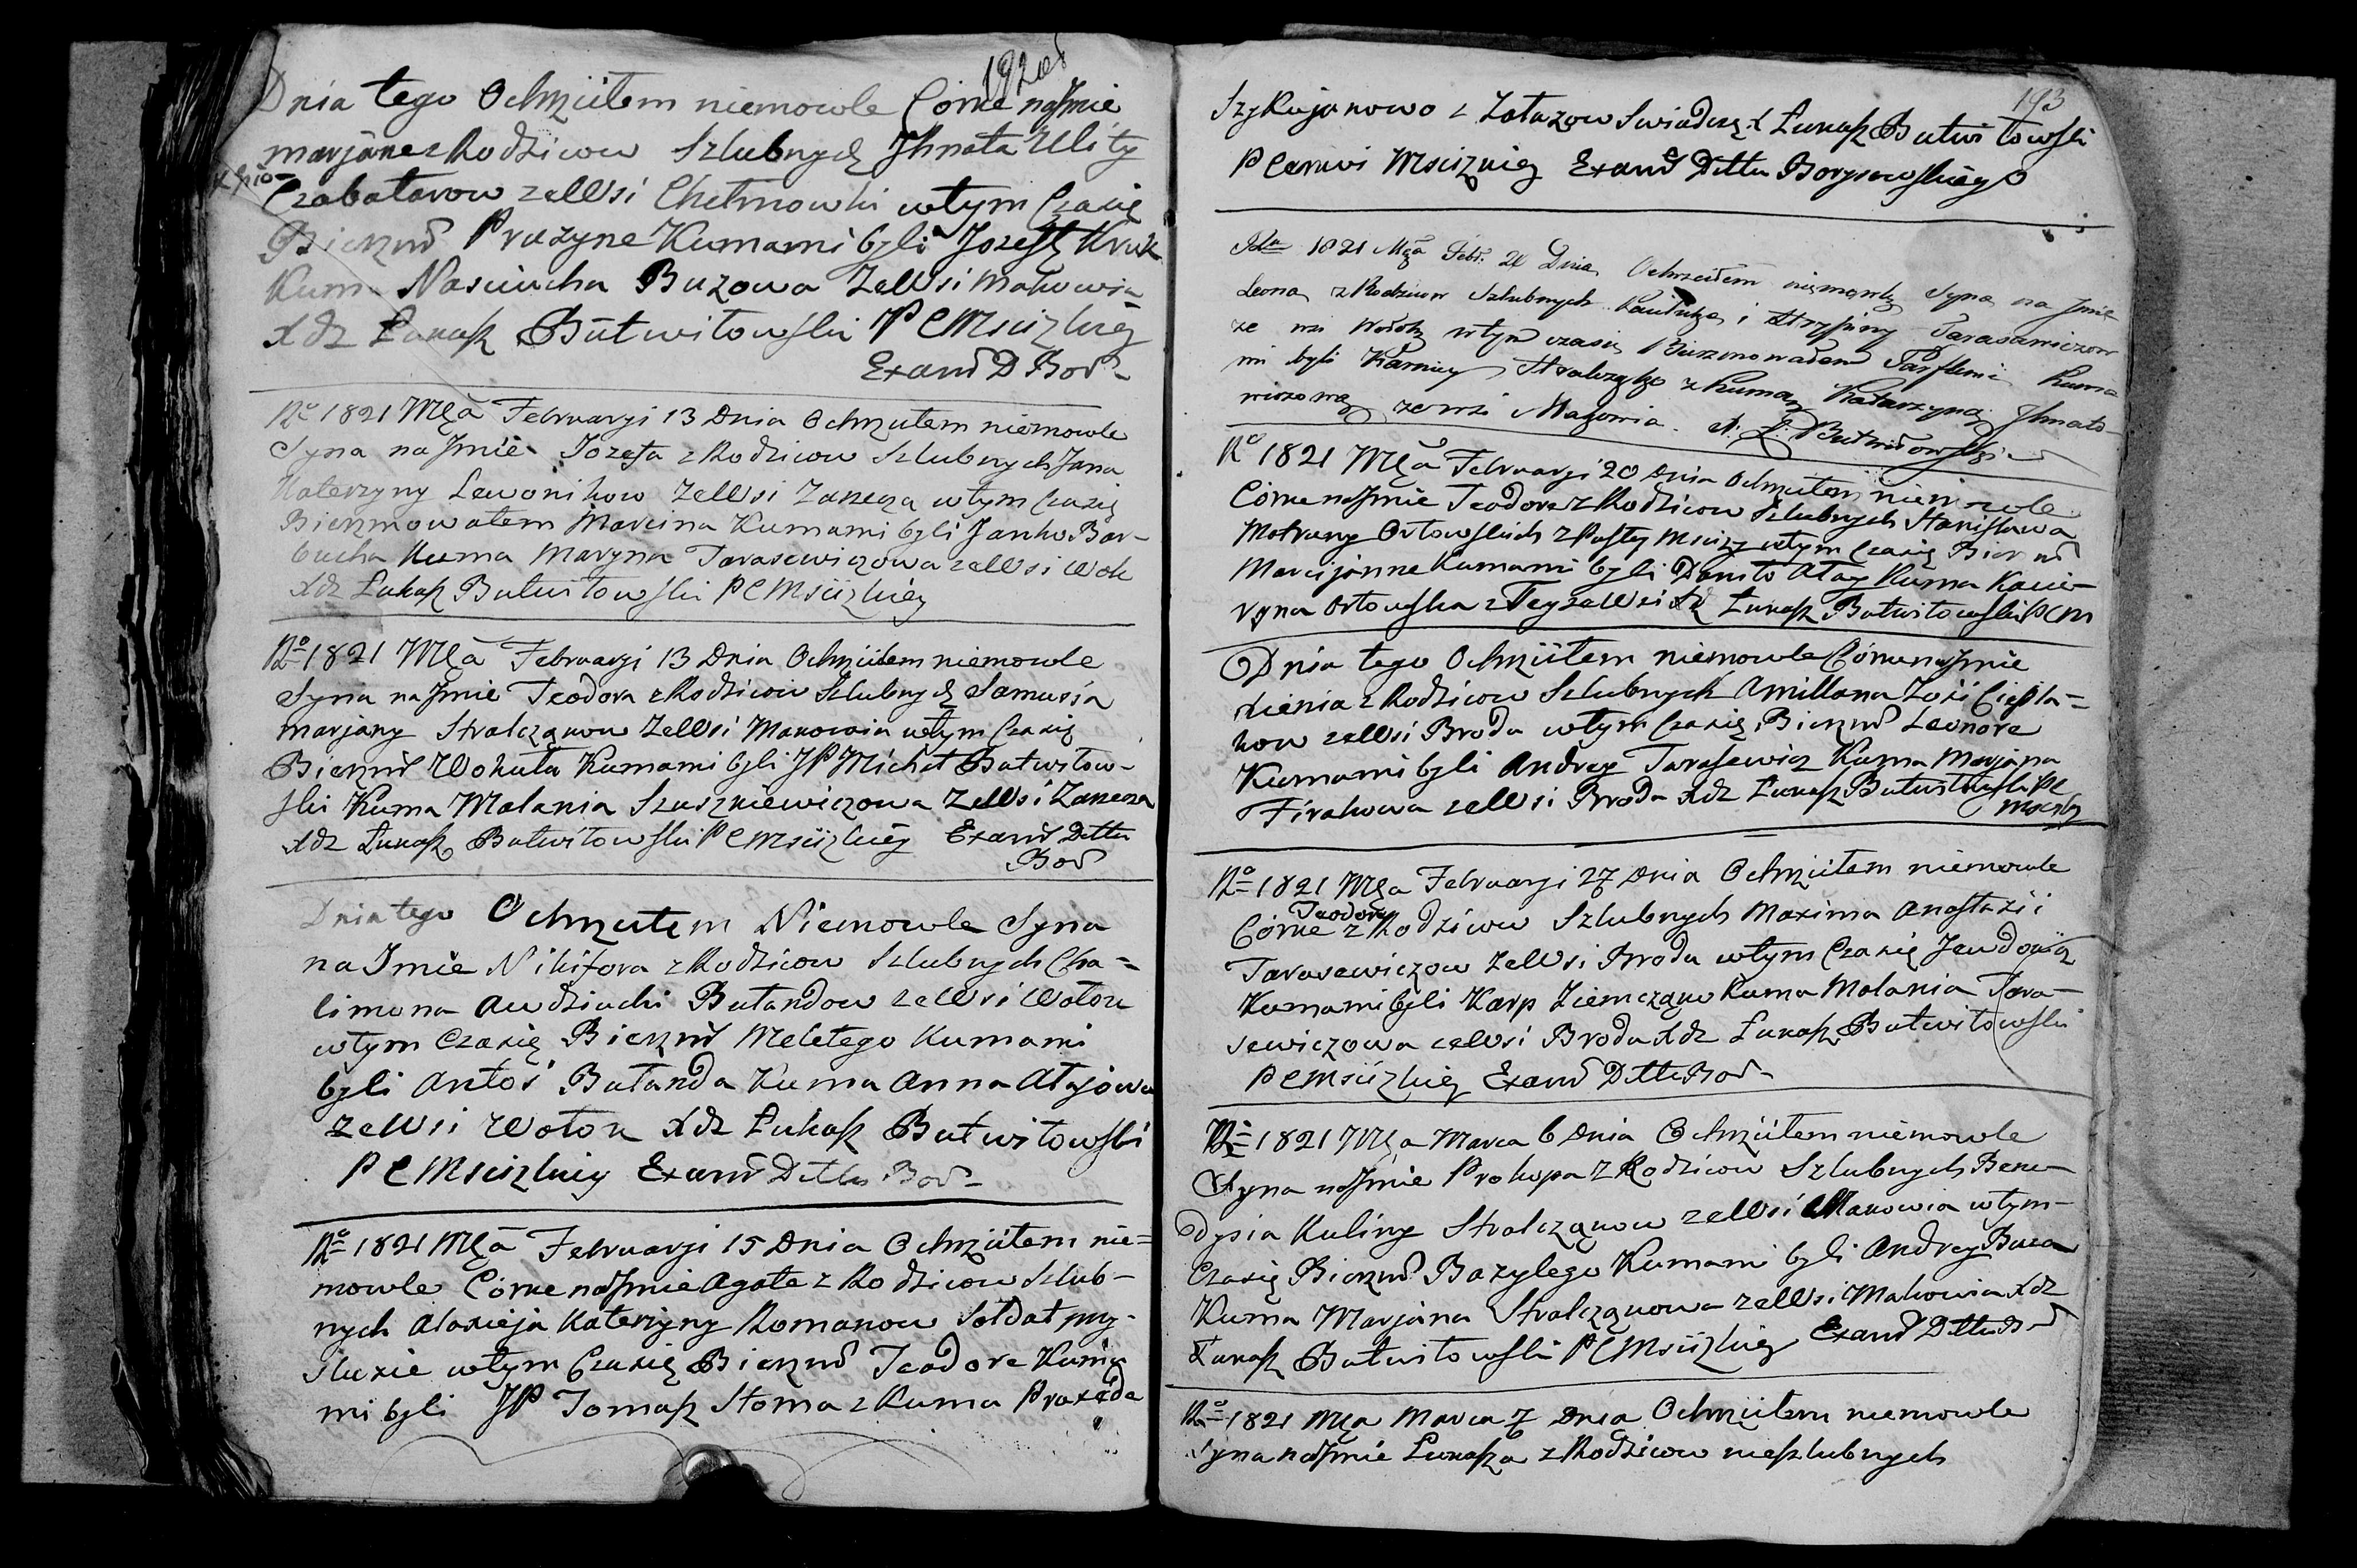 192
Dnia tego Ochrzciłem niemowle Córke na Jmie
marjane z Rodzicow Szlubnych Jhnata Ulity
Czabatarow ze Wsi Chełmowki wtym Czasie
Bierzm Praxyne Kumami byli Jozeff Kruk
Kuma Nasciucha Buzowa ze Wsi Makowia
Xdz Łukasz Butwiłowski P C Mscizkiey
Exand D Bor
Ro 1821 Mca Februarji 13 Dnia Ochrzciłem niemowle
Syna na Jmie Jozefa z Rodzicow Szlubnych Jana
Katerzyny Lewonikow ze Wsi Zarzecza wtym Czasie
Bierzmowałem Marcina Kumami byli Janko Bar-
bucha Kuma Maryna Tarasewiczowa ze Wsi Wołk
Xdz Łukasz Butwiłowski P C Mscizkiey
Ro 1821 Mca Februarji 13 Dnia Ochrzciłem niemowle
Syna na Jmie Teodora z Rodzicow Szlubnych Samusia
marjany Stralczqnow ze Wsi Makowia wtym Czasie
Bierzm Wokuła Kumami byli JP Michał Butwiłow-
ski Kuma Malania Szuszkiewiczowa ze Wsi Zarzecza
Xdz Łukasz Butwiłowski P C Mscizkiey Exand Dettu
Bor
Dnia tego Ochrzciłem Niemowle Syna
na Jmie Nikifora z Rodzicow Szlubnych Cha=
limona Awdziucki Butandow ze Wsi Wołok
wtym Czasie Bierzm Meletego Kumami
byli Antoś Butanda Kuma Anna Atajowa
ze Wsi Wołok Xdz Łukasz Butwiłowski
P C Mscizkiey Exand Dettu Bor
Ro 1821 Mca Februarji 15 Dnia Ochrzciłem nie=
mowle Córke na Jmie Agate z Rodzicow Szlub-
nych Alaxieja Katerzyny Romanow Sołdat przy-
słuxie wtym Czasie Bierzm Teodore Kuma
mi byli JP Tomasz Stoma z Kuma Praxeda
193
Szykujanowo z Załazow Swiadczę X Łukasz Butwiłowski
P C Mscizkiey Exand Dettu Borysowskiego
Rku 1821 Mca Febr. 20 Dnia Ochrzciłem niemowlę Syna na Jmie
Leona z Rodzicow Szlubnych i Tarasewiczow
ze wsi Wołok wtym czasie Bierzmowałem Parfiena Kuma-
mi byli Karniey Stralczyk z Kumą Katarzyną Jhnato-
wiczową ze wsi Makowia. X. Ł. Butwiłowski
Ro 1821 Mca Februarji 20 Dnia Ochrzciłem niemowle
Córke na Jmie Teodora z Rodzicow Szlubnych Stanisława
Motruny Orłowskich z Pusty Mscizz wtym Czasie Bierzm
Marcijanne Kumami byli Daniło Atay Kuma Kacie-
ryna Orłowska z Teyze Wsi Xdz Łukasz Butwiłowski P C M
Dnia tego Ochrzciłem niemowle Córke na Jmie
Xienia z Rodzicow Szlubnych Amillana Zosi Ciepla=
kow ze Wsi Broda wtym Czasie Bierzm Leonore
Kumami byli Andrey Tarasewicz Kuma Marjana
Firakowa ze Wsi Broda Xdz Łukasz Butwiłowski P C
Msciz
Ro 1821 Mca Februarji 27 Dnia Ochrzciłem niemowle
Teodorę
Córke z Rodzicow Szlubnych Maxima Anastazii
Tarasewiczow ze Wsi Broda wtym Czasie Jewdokią
Kumami byli Karp Ziemczqnw Kuma Malania Tara-
sewiczowa ze Wsi Broda Xdz Łukasz Butwiłowski
P C Mscizkiey Exand Dettu Bor
Ro 1821 Mca Marca 6 Dnia Ochrzciłem niemowle
Syna na Jmie Prokopa z Rodzicow Szlubnych Bene-
dysia Kuliny Stralczqnow ze Wsi Makowia wtym-
Czasie Bierzm Bazylego Kumami byli Andrey Buza
Kuma Marjana Stralczqnowa ze Wsi Makowia Xdz
Łukasz Butwiłowski P C Mscizkiey Exand Dettu B
Ro 1821 Mca Marca 7 Dnia Ochrzciłem niemowle
Syna na Jmie Łukasza z Rodzicow nieszlubnych